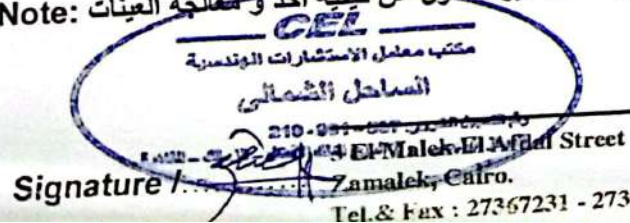 Note: أخذ و معالجة العينات
CEL
مكتب معامل الاستشارات الهندسية
الساحل الشمالى
210-991-
El-Malek El-Afdal Street
Zamalek, Cairo.
Signature /
Tel.& Fax : 27367231 - 273